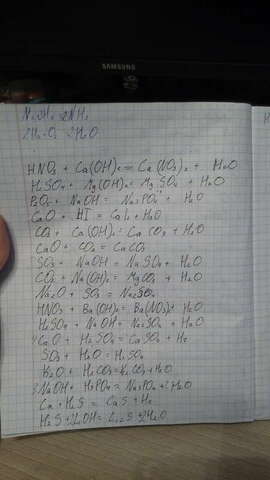 SAMSUNG
HNO3 + Ca(OH)2 = Ca(NO3)2 + H2O
H2SO4 + Mg(OH)2 = MgSO4 + H2O
P2O5 + NaOH = Na3PO4 + H2O
CaO + HI = CaI2 + H2O
CO2 + Ca(OH)2 = CaCO3 + H2O
CaO + CO2 = CaCO3
SO3 + NaOH = Na2SO4 + H2O
CO2 + Mg(OH)2 = MgCO3 + H2O
Na2O + SO3 = Na2SO4
HNO3 + Ba(OH)2 = Ba(NO3)2 + H2O
H2SO4 + NaOH = Na2SO4 + H2O
CaO + H2SO4 = CaSO4 + H2
SO3 + H2O = H2SO4
K2O + H2CO3 = K2CO3 + H2O
3NaOH + H3PO4 = Na3PO4 + H2O
Ca + H2S = CaS + H2
H2S + 2LiOH = Li2S + 2H2O